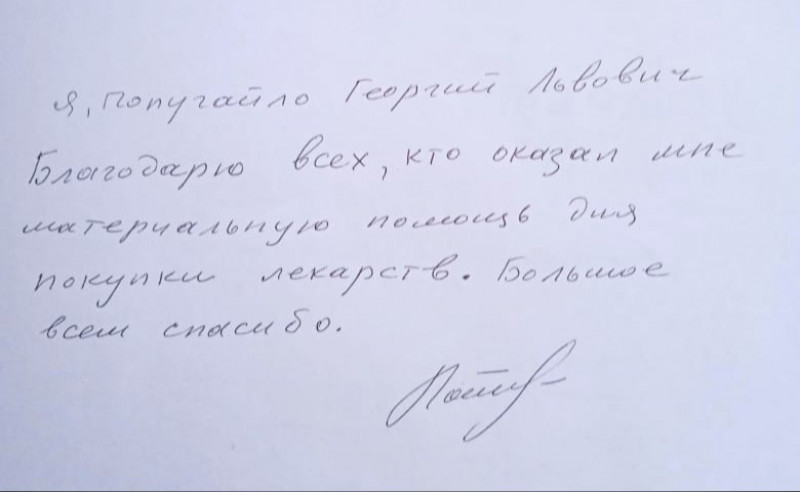 Я, Попугайло Георгий Львович
Благодарю всех, кто оказал мне
материальную помощь для
покупки лекарств. Большое
всем спасибо.